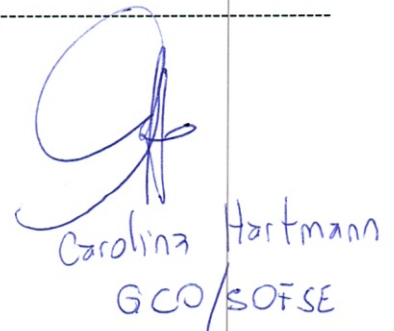 Carolina Hartmann
GCO/SOFSE